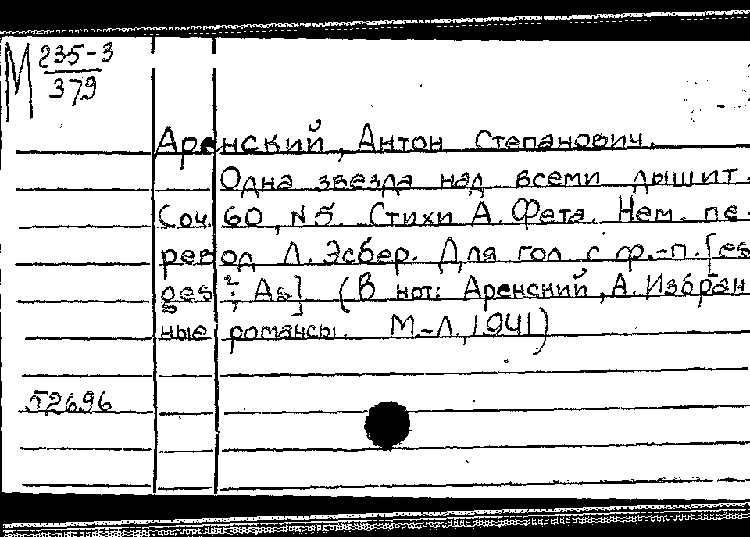 М 235-3
379
Аренский, Антон Степанович.
Одна звезда над всеми дышит.
Соч. 60, N5. Стихи А. Фета. Нем. пе
ревод Л. Эсбер. Для гол с ф.-п. [es
ges²; As] (В нот: Аренский, А. Избран
ные романсы. М-Л., 1941)
52696